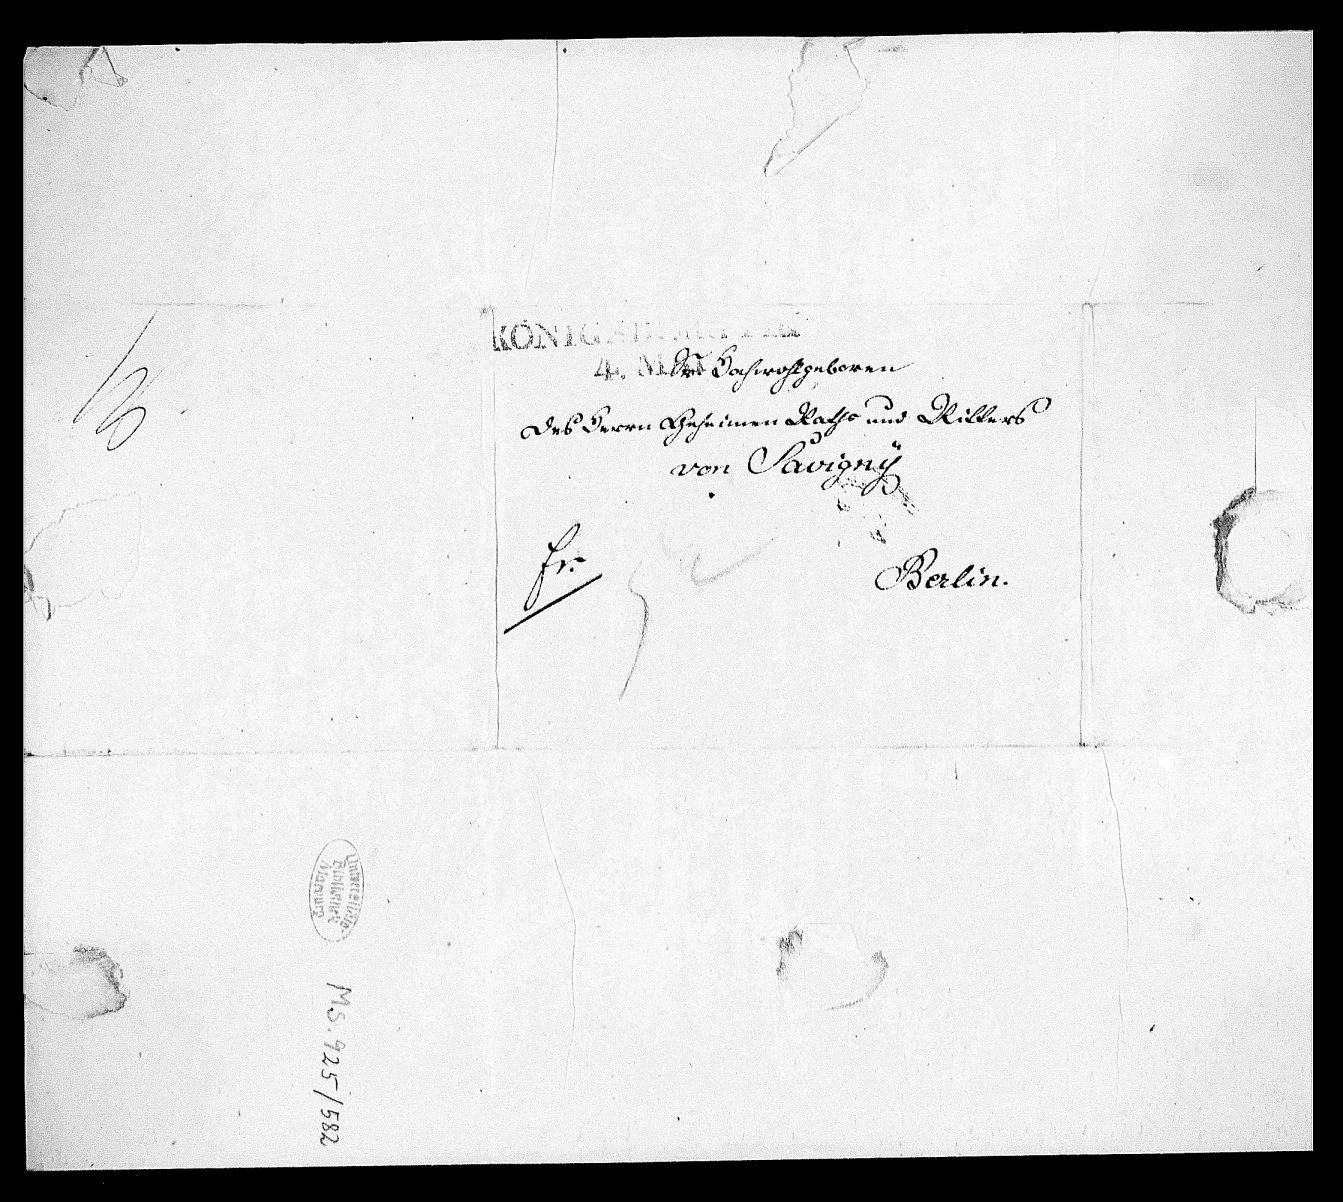 4. MAI
Sr Hochwohlgeboren
des Herrn Geheimen Raths und Ritters
von Savigny
Fr.
Berlin.
Universitäts-
Bibliothek
Marburg
Ms. 925/582